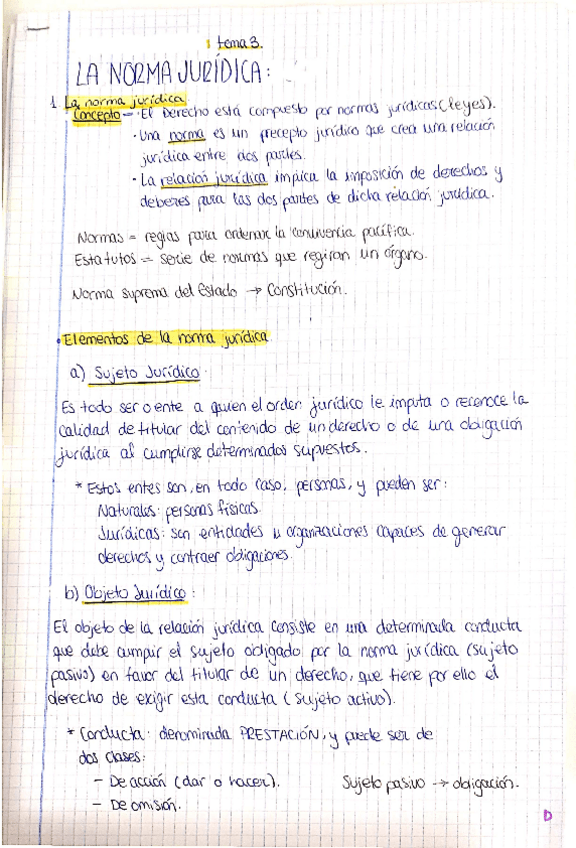 tema 3.
LA NORMA JURÍDICA:
1. La norma jurídica
Concepto - · El Derecho está compuesto por normas jurídicas (leyes).
· Una norma es un precepto jurídico que crea una relación
jurídica entre dos partes.
· La relación jurídica implica la imposición de derechos y
deberes para las dos partes de dicha relación jurídica.
Normas = reglas para ordenar la convivencia pacífica.
Estatutos = serie de normas que regirán un órgano.
Norma suprema del Estado → Constitución.
• Elementos de la norma jurídica
a) Sujeto Jurídico
Es todo ser o ente a quien el orden jurídico le imputa o reconoce la
calidad de titular del contenido de un derecho o de una obligación
jurídica al cumplirse determinados supuestos.
* Estos entes son, en todo caso, personas, y pueden ser:
Naturales: personas físicas.
Jurídicas: son entidades u organizaciones capaces de generar
derechos y contraer obligaciones.
b) Objeto Jurídico:
El objeto de la relación jurídica consiste en una determinada conducta
que debe cumplir el sujeto obligado por la norma jurídica (sujeto
pasivo) en favor del titular de un derecho, que tiene por ello el
derecho de exigir esta conducta (sujeto activo).
* Conducta: denominada PRESTACIÓN, y puede ser de
dos clases:
- De acción (dar o hacer). Sujeto pasivo → obligación.
- De omisión.